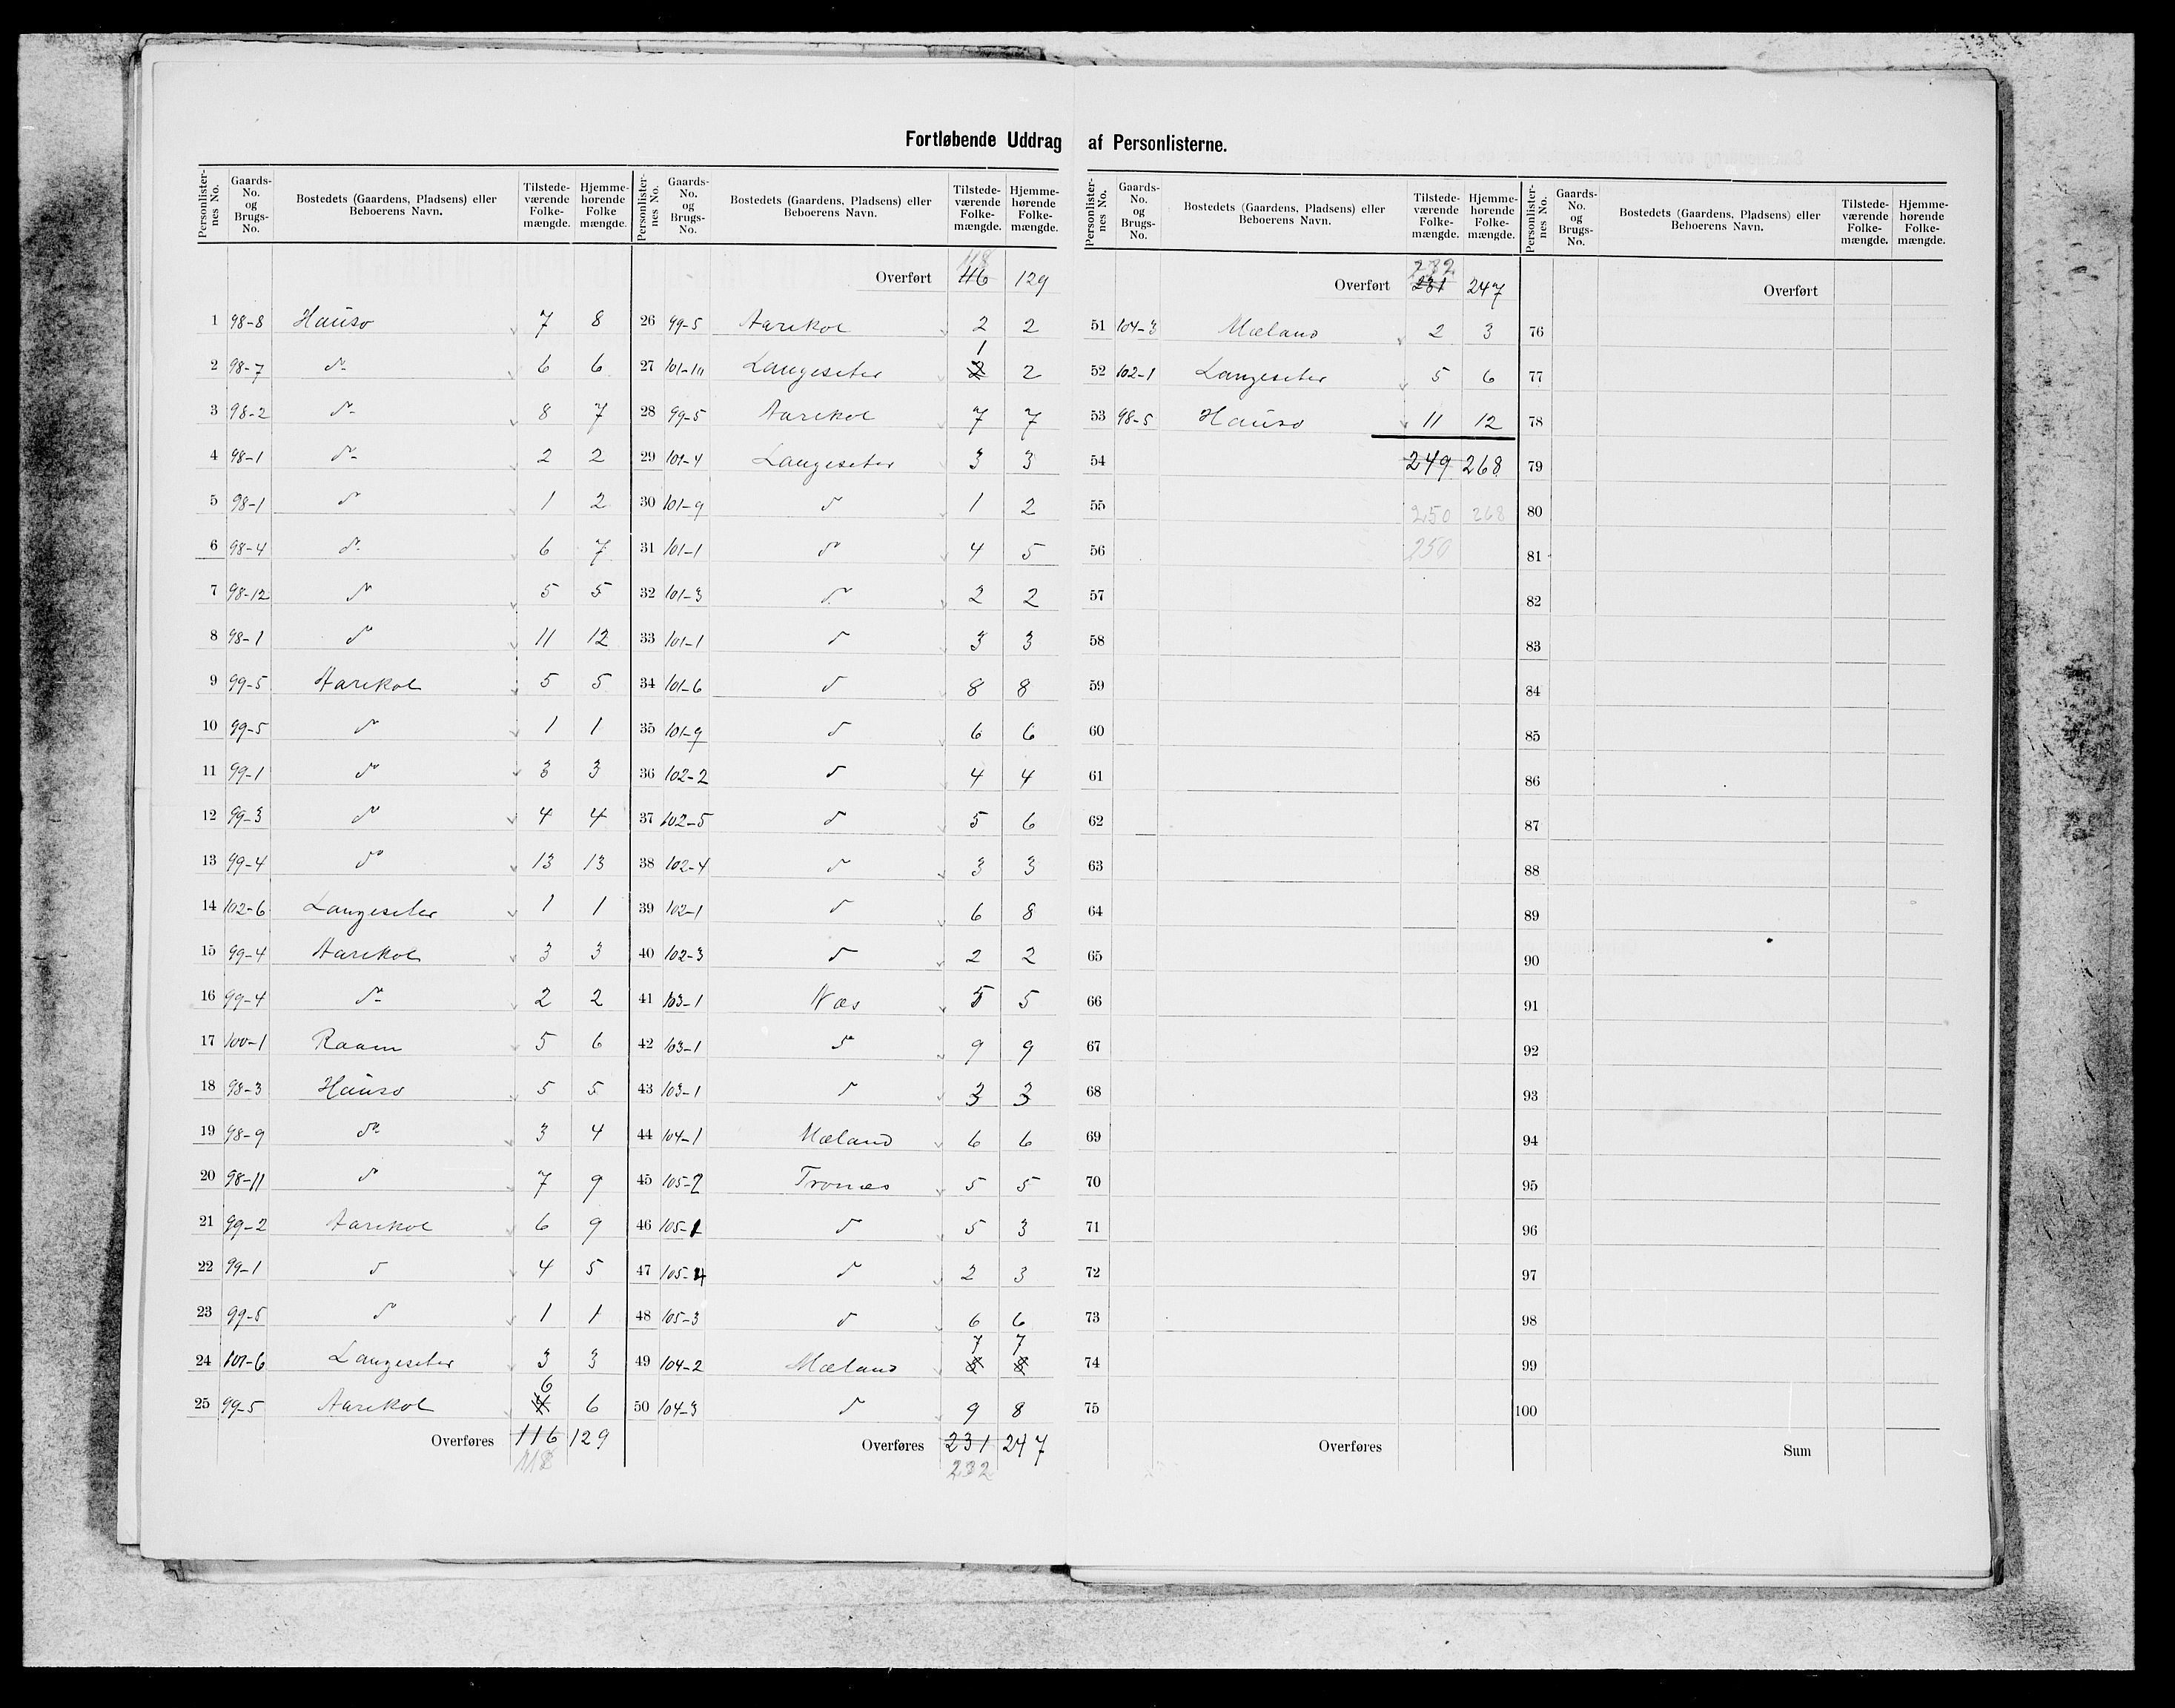 Fortløbende Uddrag af Personlisterne.
Personlister-nes No. | Gaards-No. og Brugs-No. | Bostedets (Gaardens, Pladsens) eller Beboerens Navn. | Tilstede-værende Folke-mængde. | Hjemme-hørende Folke mængde.
1 98-8 Hauso 7 8
2 98-7 do 6 6
3 98-2 do 8 7
4 98-1 do 2 2
5 98-1 do 1 2
6 98-4 do 6 7
7 98-12 do 5 5
8 98-1 do 11 12
9 99-5 Aarekol 5 5
10 99-5 do 1 1
11 99-1 do 3 3
12 99-3 do 4 4
13 99-4 do 13 13
14 102-6 Langeseter 1 1
15 99-4 Aarekol 3 3
16 99-4 do 2 2
17 100-1 Raaen 5 6
18 98-3 Hauso 5 5
19 98-9 do 3 4
20 98-11 do 7 9
21 99-2 Aarekol 6 9
22 99-1 do 4 5
23 99-5 do 1 1
24 101-6 Langeseter 3 3
25 99-5 Aarekol 6 6
Overføres 116 129
118
Personlister-nes No. | Gaards-No. og Brugs-No. | Bostedets (Gaardens, Pladsens) eller Beboerens Navn. | Tilstede-værende Folke-mængde. | Hjemme-hørende Folke-mængde.
118
Overført 116 129
26 99-5 Aarekol 2 2
27 101-10 Langeseter 1 2 2
28 99-5 Aarekol 7 7
29 101-4 Langeseter 3 3
30 101-9 do 1 2
31 101-1 do 4 5
32 101-3 do 2 2
33 101-1 do 3 3
34 101-6 do 8 8
35 101-9 do 6 6
36 102-2 do 4 4
37 102-5 do 5 6
38 102-4 do 3 3
39 102-1 do 6 8
40 102-3 do 2 2
41 103-1 Næs 5 5
42 103-1 do 9 9
43 103-1 do 3 3
44 104-1 Mæland 6 6
45 105-2 Tronæs 5 5
46 105-1 do 5 3
47 105-4 do 2 3
48 105-3 do 6 6
49 104-2 Mæland 7 7
50 104-3 do 9 8
Overføres 231 247
232
Personlister-nes No. | Gaards-No. og Brugs-No. | Bostedets (Gaardens, Pladsens) eller Beboerens Navn. | Tilstede-værende Folke-mængde. | Hjemme-hørende Folke-mængde.
232
Overført 231 247
51 104-3 Mæland 2 3
52 102-1 Langeseter 5 6
53 98-5 Hauso 11 12
54 249 268
55 250 268
56 250
57
58
59
60
61
62
63
64
65
66
67
68
69
70
71
72
73
74
75
Overføres
Personlister-nes No. | Gaards-No. og Brugs-No. | Bostedets (Gaardens, Pladsens) eller Beboerens Navn. | Tilstede-værende Folke-mængde. | Hjemme-hørende Folke-mængde.
Overført
76
77
78
79
80
81
82
83
84
85
86
87
88
89
90
91
92
93
94
95
96
97
98
99
100
Sum